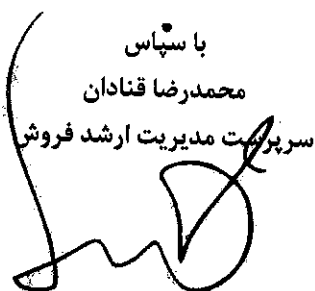 با سپاس
محمدرضا قنادان
سرپرست مدیریت ارشد فروش